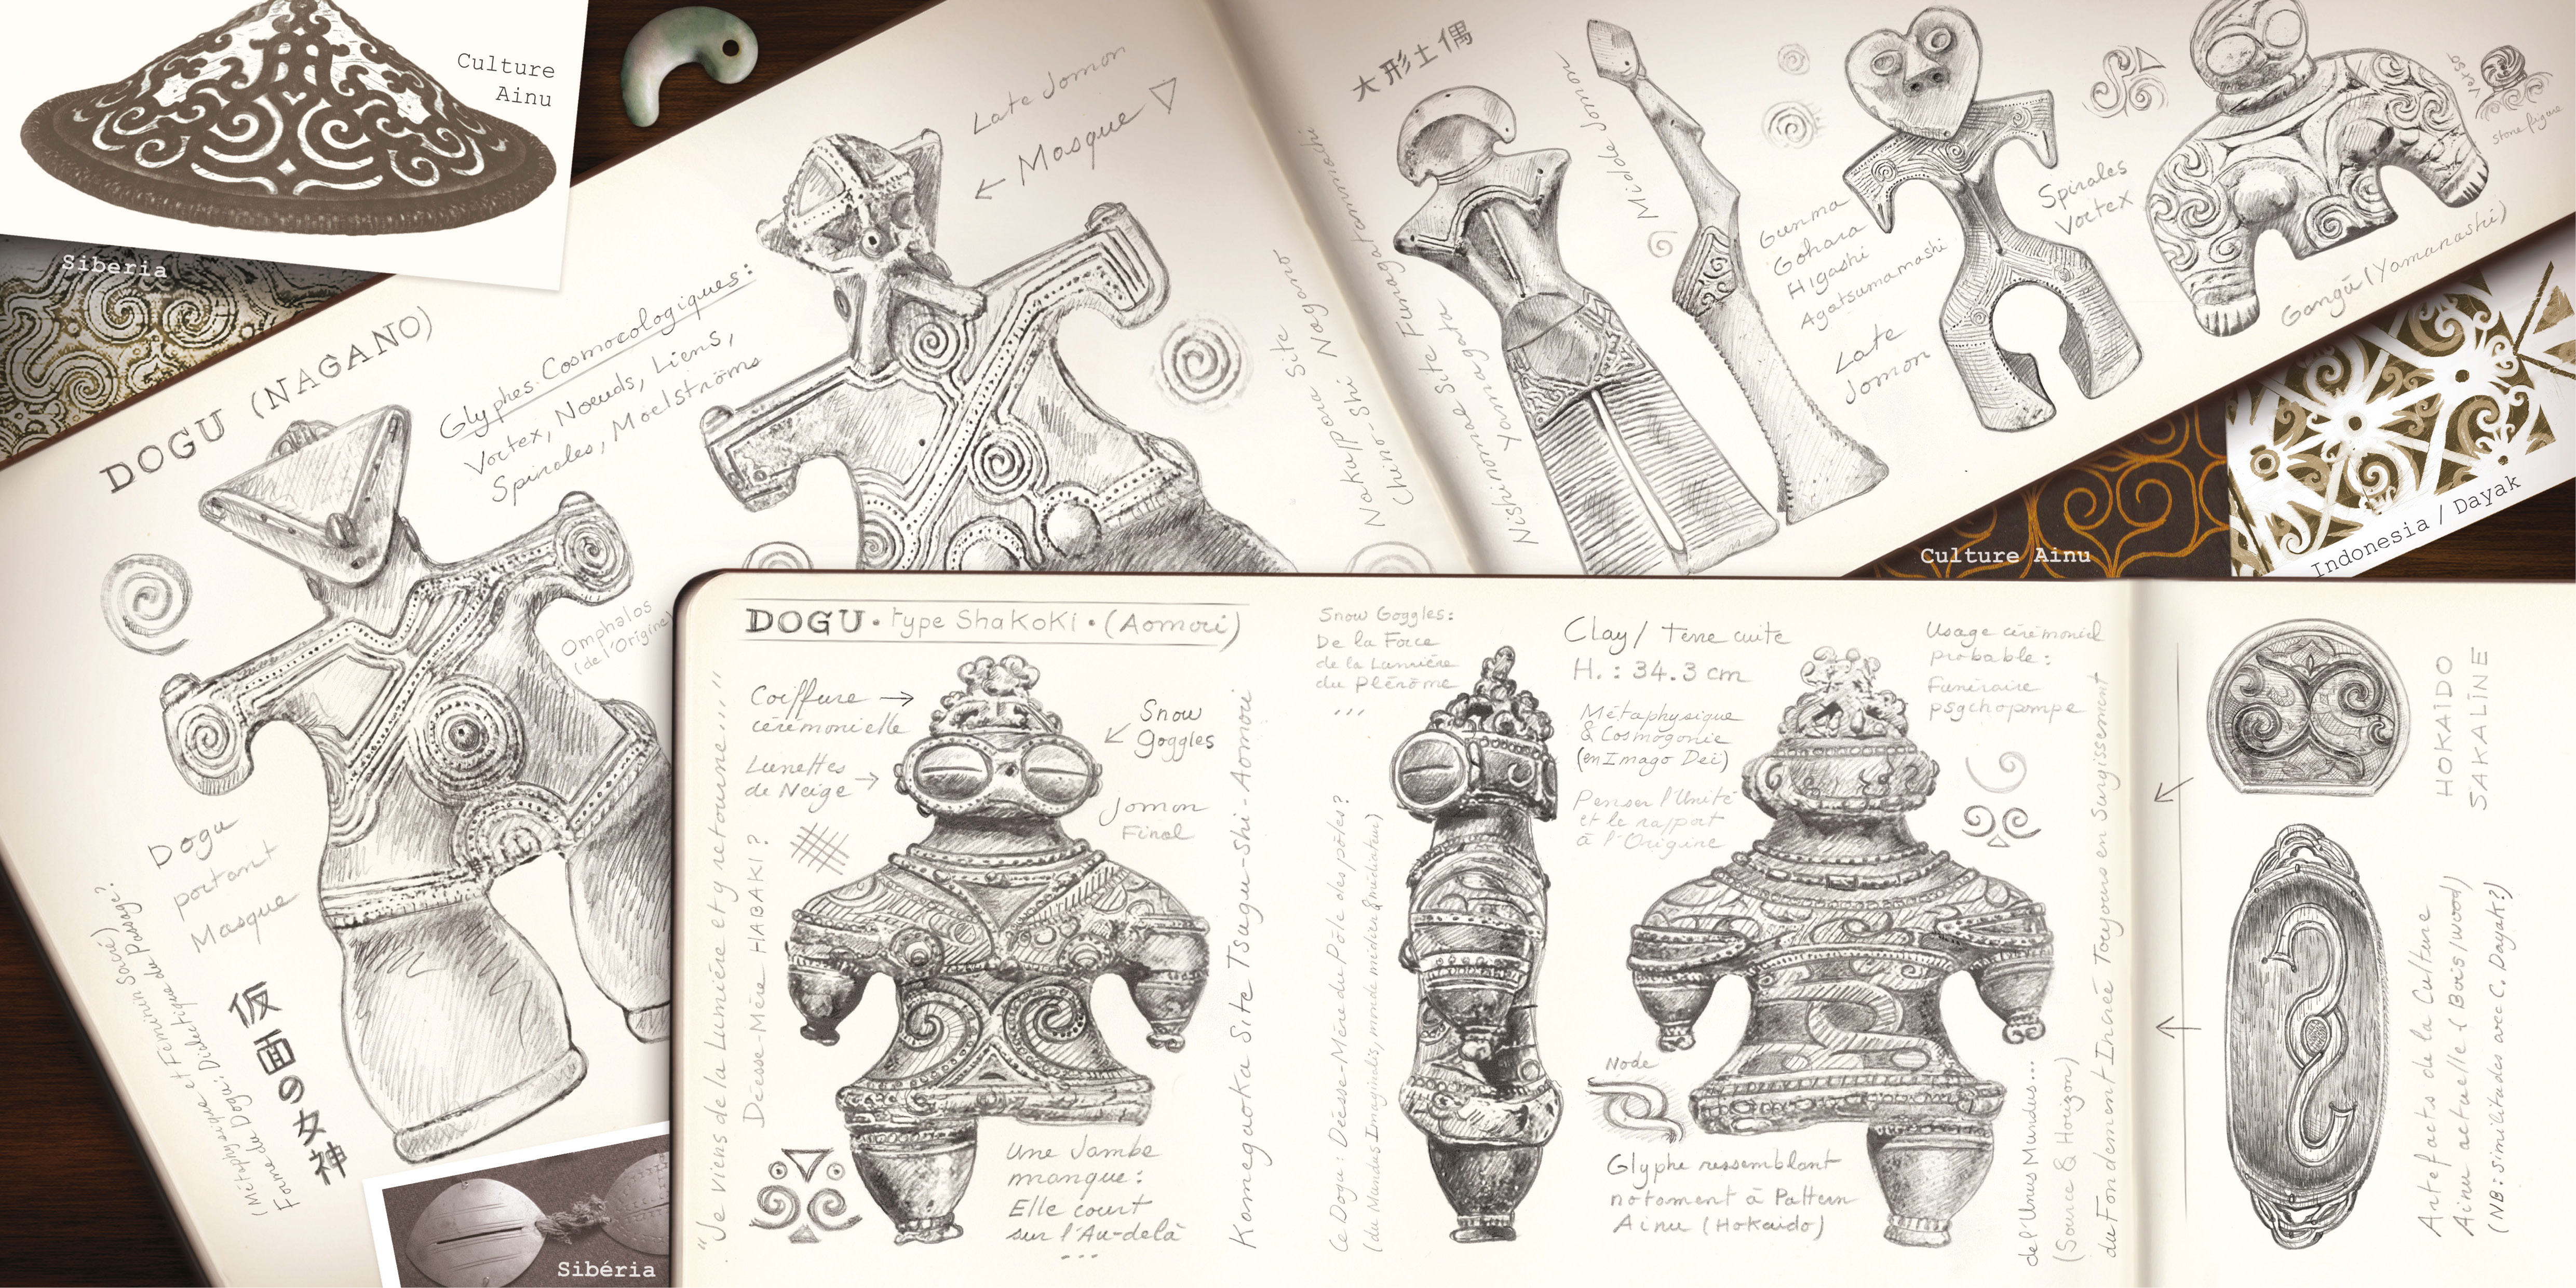 Culture
Ainu
Siberia
DOGU (NAGANO)
Glyphes Cosmocologiques:
Vortex, Noeuds, Liens,
Spirales, Maelströms
Late Jomon
← Masque ▽
Nakappara Site
Chino-Shi Nagano
Omphalos
(de l'Origine)
Dogu
portant
Masque
仮面の女神
(Métaphysique et Féminin Sacré)
Forme du Dogu: Dialectique du Passage?
Sibéria
大形土偶
Nishinomae Site Funagatamachi
Yamagata
Middle Jomon
Gunma
Gohara
Higashi
Agatsumamashi
Late
Jomon
Spirales
Vortex
Verso
stone figure
Gangū (Yamanashi)
Culture Ainu
Indonesia / Dayak
DOGU • type Shakoki • (Aomori)
"Je viens de la Lumière et y retourne..."
Déesse-Mère HABAKI?
Coiffure →
cérémonielle
Lunettes
de Neige →
Snow
goggles
Jomon
Final
Une Jambe
manque:
Elle court
sur l'Au-delà
...
Kamegaoka Site Tsugu-Shi-Aomori
Snow Goggles:
De la Force
de la Lumière
du Plérôme
...
Ce Dogu: Déesse-Mère du Pôle des pôles?
(du Mundus Imaginalis, monde médian & médiateur)
Clay / Terre cuite
H. : 34.3 cm
Métaphysique
& Cosmogonie
(en Imago Dei)
Penser l'Unité
et le rapport
à l'Origine
Usage cérémoniel
probable:
Funéraire
psychopompe
Node
Glyphe ressemblant
notament à Pattern
Ainu (Hokaido)
de l'Unus Mundus...
(Source & Horizon)
du Fondement Incréé Toujours en Surgissement
HOKAÏDO
SAKALINE
Artefacts de la Culture
Ainu actuelle (Bois/wood)
(NB: similitudes avec C. Dayak?)